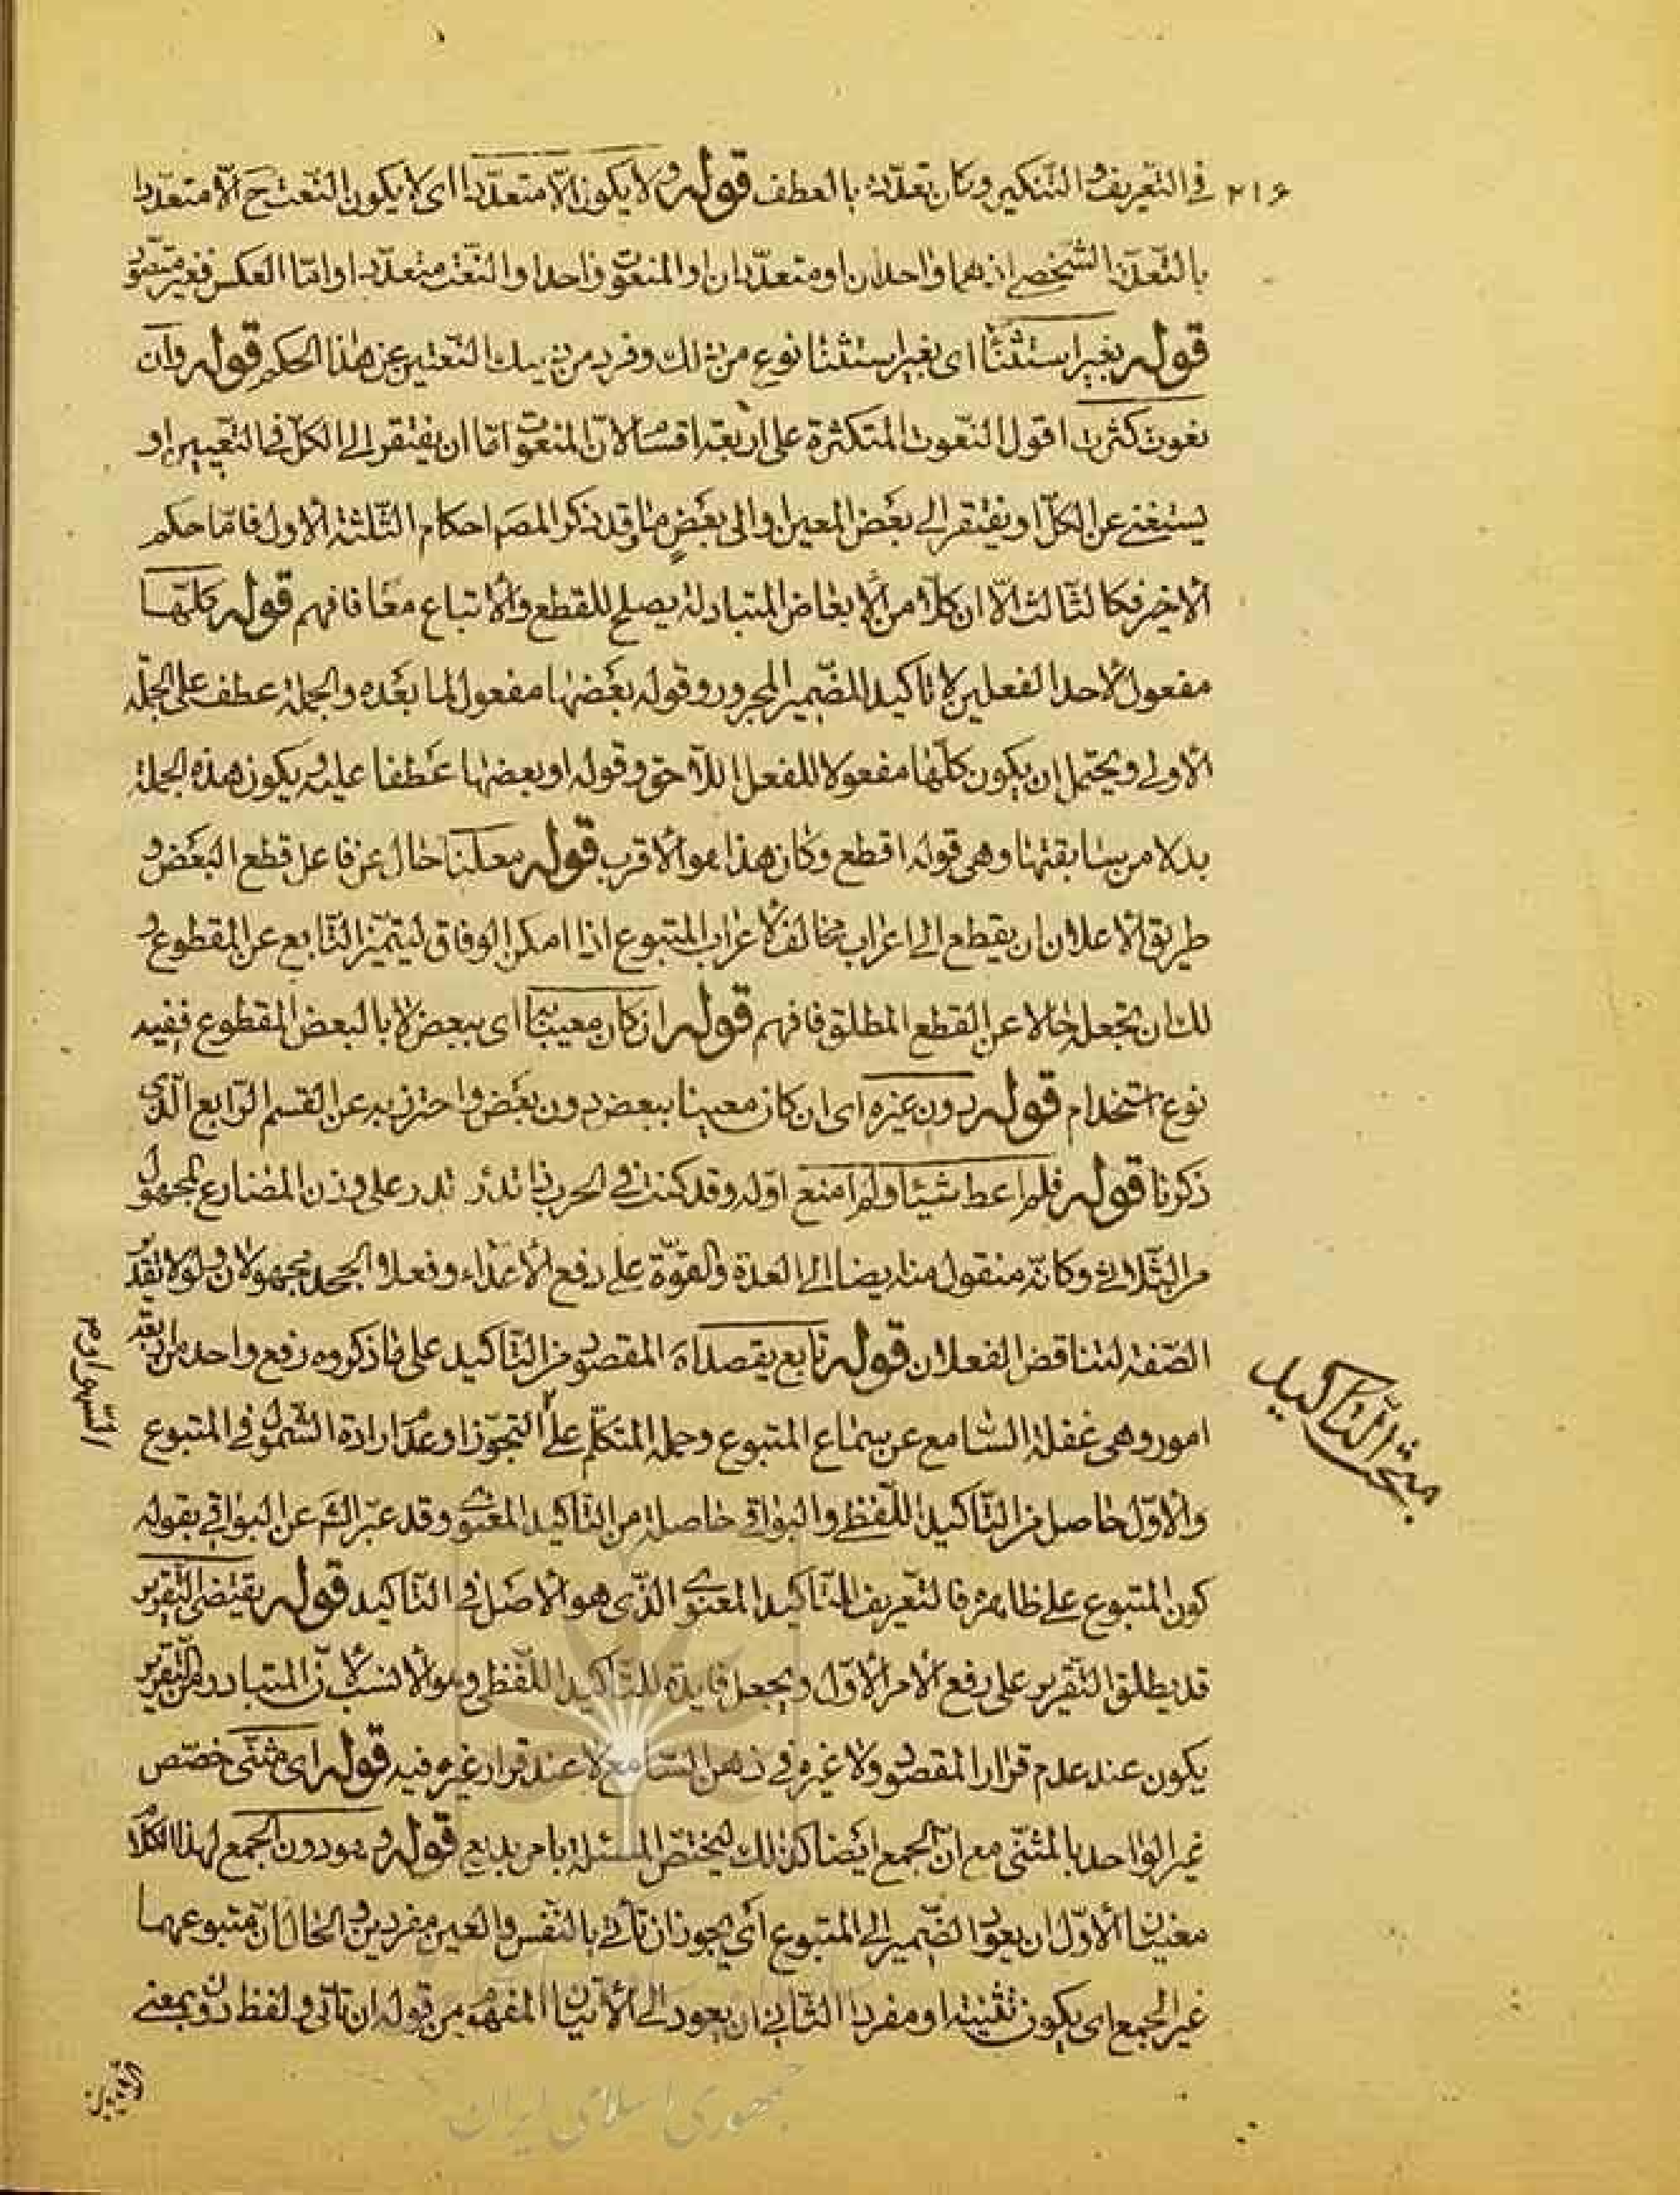 ٢١۶ فى التعريف والتنكير وكان تعدّده بالعطف قوله ولا يكون الّا متعدّدا اى لا يكون النّعت ح الّا متعدّدا
بالتّعدّد الشّخصى اذ هما واحدان او متعدّدان او المنعوت واحد والنّعت متعدّد واما العكس فغير متصوّر
قوله بغير استثنا اى بغير استثنا نوع من ذلك وفرد من ذينك النّعتين عن هذا الحكم قوله وان
نعوت كثرت اقول النّعوت المتكثرة على اربعة اقسام لانّ المنعوت امّا ان يفتقر الى الكلّ فى التعيين او
يستغنى عن الكلّ او يفتقر الى بعض المعين او الى بعض ما وقد ذكر المصم احكام الثّلثة الاول فامّا حكم
الاخير فكالثّالث الّا ان كلّا من الابعاض المتبادلة يصلح للقطع والاتباع معًا فافهم قوله كلّها
مفعول لاحد الفعلين لا تاكيد للضّمير المجرور وقوله بعضها مفعول لما بعده والجملة عطف على الجملة
الاولى ويحتمل ان يكون كلّها مفعولا للفعل اللّاحق وقوله او بعضها عطفا عليه ويكون هذه الجملة
بدلا من سابقتها وهى قوله اقطع وكان هذا هو الاقرب قوله معلنا حال عن فاعل قطع البعض و
طريق الاعلان ان يقطع الى اعراب مخالف لاعراب المتبوع اذا امكن الوفاق ليتميّز التّابع عن المقطوع و
لك ان تجعله حالا عن القطع المطلق فافهم قوله ان كان معينا اى ببعض لا بالبعض المقطوع ففيه
نوع استخدام قوله دون غيره اى ان كان معينا ببعض دون بعض واحترز به عن القسم الرّابع الّذى
ذكرنا قوله فلم اعط شيئا ولم امنع اوّله وقد كنت فى الحرب ذا تدرء تدرء على وزن المضارع المجهول
من الثّلاثى وكانّه منقول منه ايضا الى العدة والقوّة على دفع الاعداء وفعلا الجحد مجهولان ولولا تقدير
الصّفة لتناقض الفعلان قوله تابع يقصد اه المقصود من التّاكيد على ما ذكروه رفع واحد من
امور وهى غفلة السّامع عن سماع المتبوع وحمله المتكلّم على التجوّز او عدم ارادة الشّمول فى المتبوع
والاوّل حاصل من التّاكيد اللّفظى والبواقى حاصلة من التّاكيد المعنوى وقد عبّر الشّم عن البواقى بقوله
كون المتبوع على ظاهره فالتّعريف للتّاكيد المعنوى الّذى هو الاصل فى التّاكيد قوله يقتضى التّقرير
قد يطلق التّقرير على رفع الامر الاوّل ويجعل فايدة للتّاكيد اللّفظى وهو الانسب لانّ المتبادر من التّقرير
يكون عند عدم قرار المقصود ولا غيره فى ذهن السّامع لا عند قرار غيره فيه قوله اى مثنّى خصّص
غير الواحد بالمثنّى مع انّ الجمع ايضا كذلك ليختصّ المسئلة بامر بديع قوله وهو دون الجمع لهذا الكلام
معنيان الاوّل ان يعود الضّمير الى المتبوع اى يجوز ان تأتى بالنّفس والعين مفردين والحال انّ متبوعهما
غير الجمع اى يكون تثنية او مفردا الثّانى ان يعود الى الاتيان المفهوم من قوله ان تأتى ولفظ دون بمعنى
مبحث التّاكيد